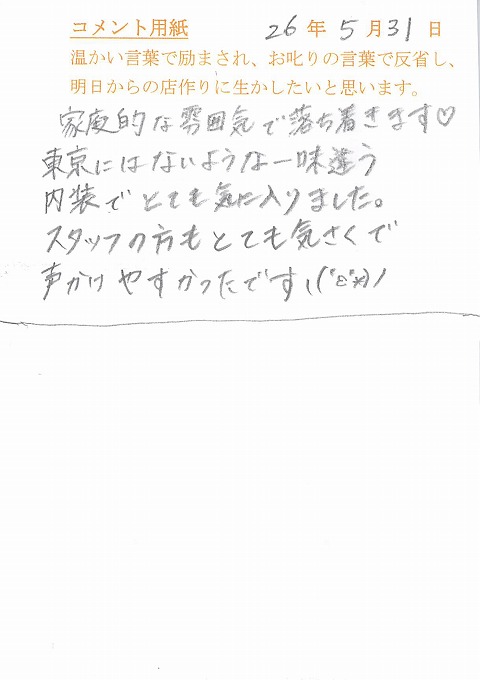 コメント用紙 26年5月31日
温かい言葉で励まされ、お叱りの言葉で反省し、
明日からの店作りに生かしたいと思います。
家庭的な雰囲気で落ち着きます♡
東京にはないような一味違う
内装でとても気に入りました。
スタッフの方もとても気さくで
声かけやすかったです